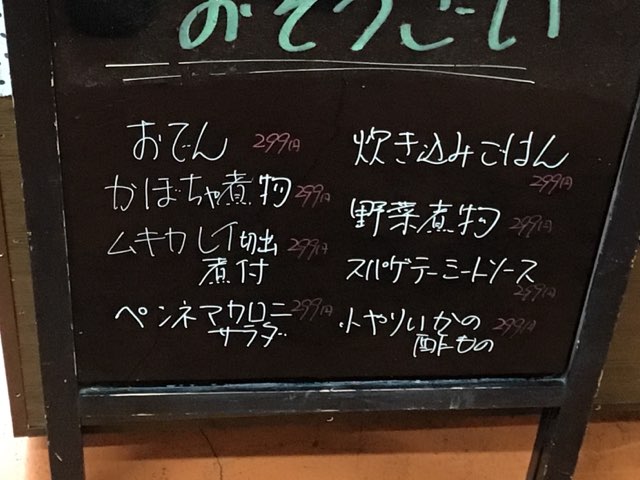 おそうざい
おでん 299円
かぼちゃ煮物 299円
ムキカレイ切出 299円
煮付
ペンネマカロニ 299円
サラダ
炊き込みごはん
299円
野菜煮物 299円
スパゲテーミートソース
299円
小やりいかの 299円
酢もの